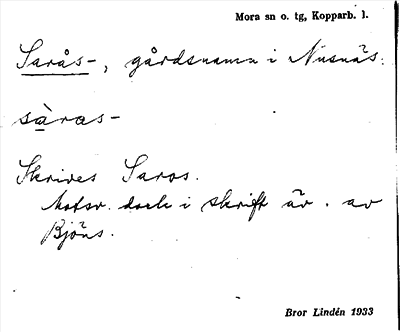 Mora sn o. tg, Kopparb. l.
Sarås-, gårdsnamn i Nusnäs.
sàras-
Skrives Saros.
Motsv. dock i skrift äv. av
Bjöns.
Bror Lindén 1933